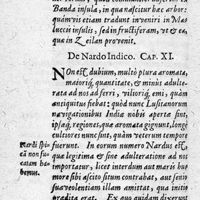 Banda insula, in qua nascitur hæc arbor:
quàm vis etiam tradunt inveniri in Mas
luccis insulis, sed infructiferam, vt & ea,
qua in Zeilan provenit.
De Nardo Indico. CAP. XI.
NOn est dubium, multò plura aromata,
maiorig, quantitate, & minùs adulte-
rata ad nos adferri, vilioriq, emi, quàm
antiquitus fiebat: quòd nunc Lusitanorum
navigationibus India nobis aperta est,
ipsæq, regiones, quæ aromata gignunt, longè
cultiores nunc sunt, quàm veterum tempore
fuerunt. In eorum numero Nardus est,
qua legitima & sine adulteratione ad nos
importatur, licet interdum aut maris hu-
more sibi accito situm contrahat, aut senio
suaveolentiam illam amittat, qua initio
prædita erat. Ex quo quidam diverunt
Nardi Spi-
ca non fu-
catam ha-
bemus.